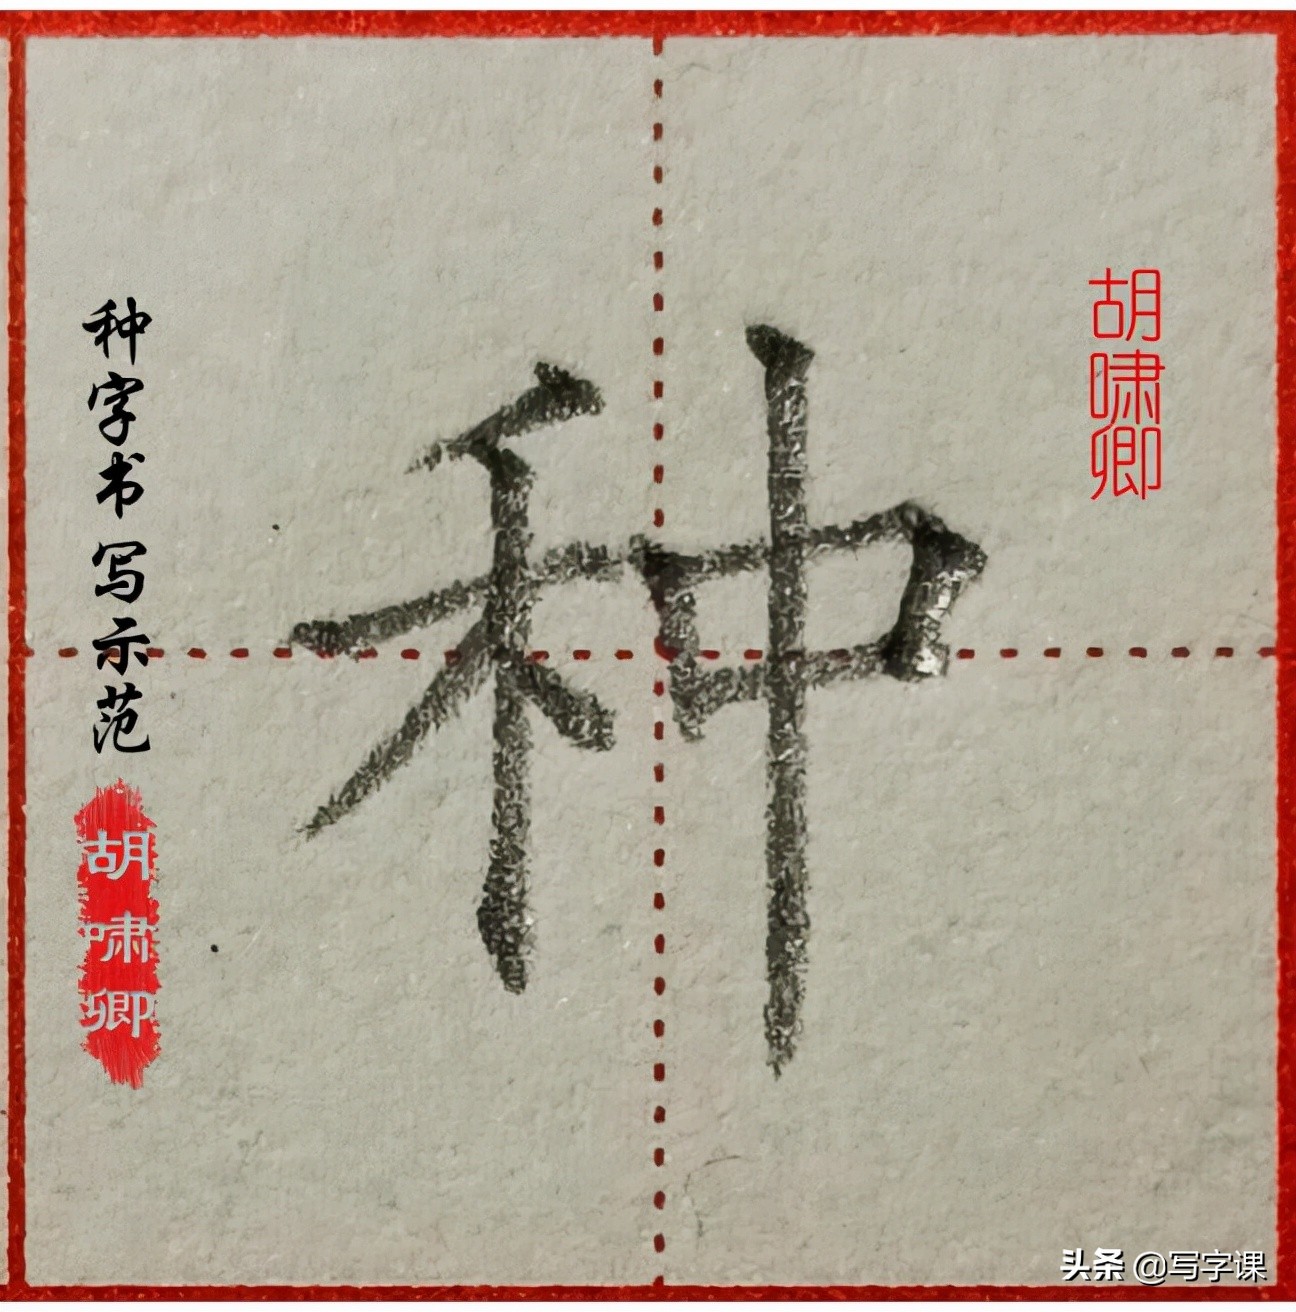 种字书写示范
胡啸卿
种
胡啸卿
头条 @写字课